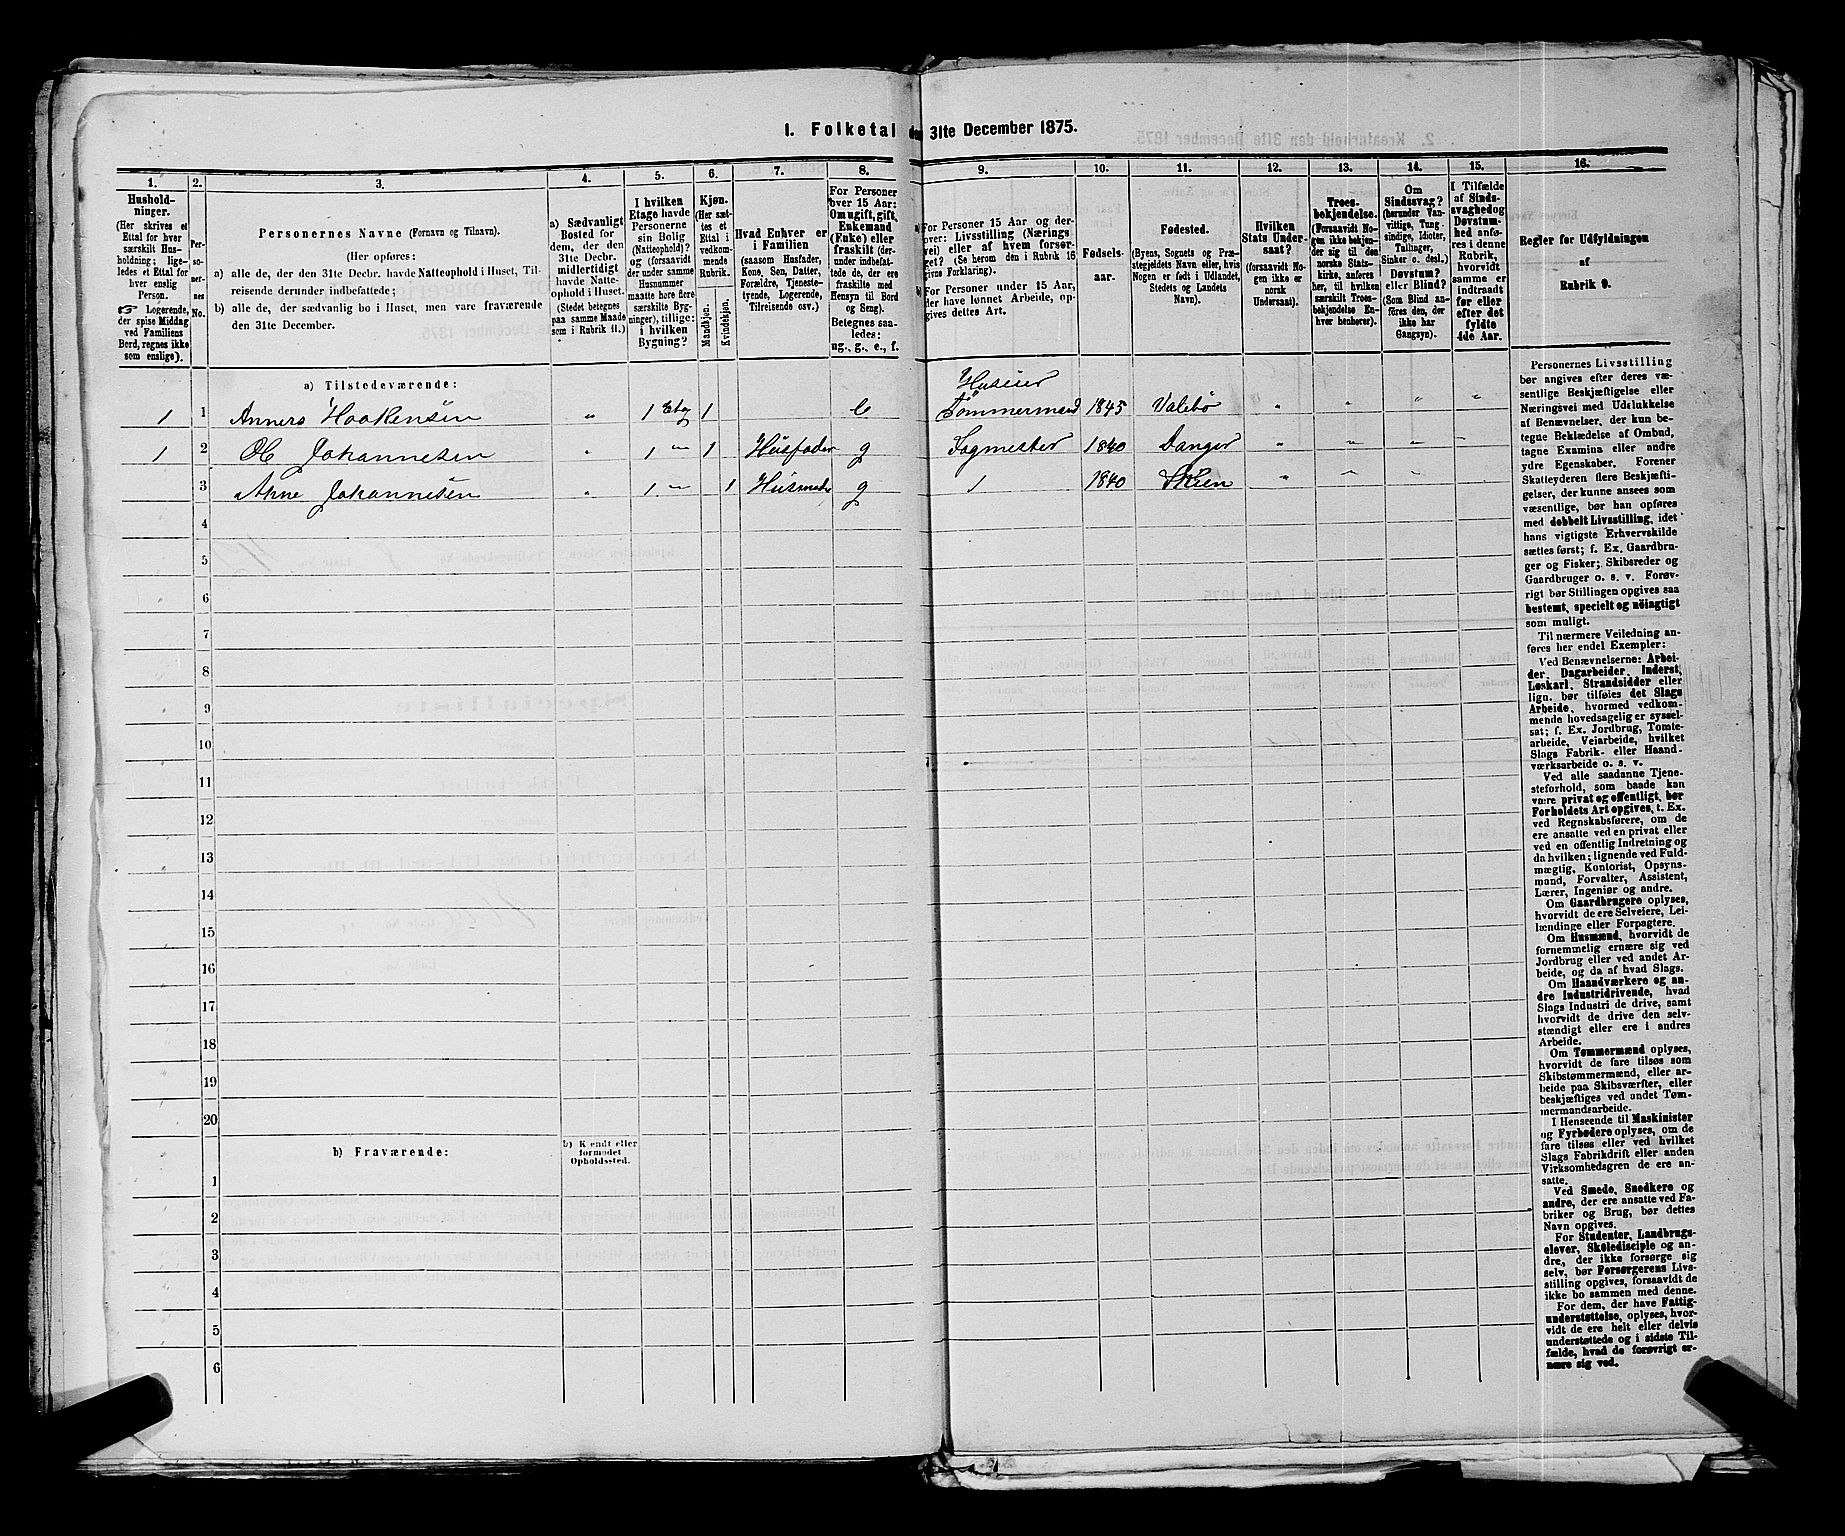 1. Folketal den 31te December 1875.
1.
Hushold-
ninger.
(Her skrives et
Ettal for hver
særskilt Hus-
holdning; lige-
ledes et Ettal for
hver enslig
Person.
Logerende,
der spise Middag
ved Familiens
Bord, regnes ikke
som enslige).
2.
Per-
soner-
nes
No.
3.
Personernes Navne (Fornavn og Tilnavn).
(Her opføres:
a) alle de, der den 31te Decbr. havde Natteophold i Huset, Til-
reisende derunder indbefattede;
b) alle de, der sædvanlig bo i Huset, men vare fraværende
den 31te December.
4.
a) Sædvanligt
Bosted for
dem, der den
31te Decbr.
midlertidigt
havde Natte-
ophold i Huset.
(Stedet betegnes
paa samme Maade
som i Rubrik 11.)
5.
I hvilken
Etage havde
Personerne
sin Bolig
(Natteophold)?
og (forsaavidt
der under samme
Husnummer
maatte høre flere
særskilte Byg-
ninger), tillige:
i hvilken
Bygning?
6.
Kjøn.
(Her sæt-
tes et
Ettal i
vedkom-
mende
Rubrik.
Mandkjøn.
Kvindekjøn.
7.
Hvad Enhver er
i Familien
(saasom Husfader,
Kone, Søn, Datter,
Forældre, Tjeneste-
tyende, Logerende,
Tilreisende osv.)
8.
For Personer
over 15 Aar:
Om ugift, gift,
Enkemand
(Enke) eller
fraskilt (der-
under indbefat-
tede de, der ere
fraskilte med
Hensyn til Bord
og Seng).
Betegnes saa-
ledes:
ug., g., e., f.
9.
a) For Personer 15 Aar og der-
over: Livsstilling (Nærings
vei) eller af hvem forsør-
get? (Se herom den i Rubrik 16
givne Forklaring).
b) For Personer under 15 Aar,
der have lønnet Arbeide, op-
gives dettes Art.
10.
Fødsels-
aar.
11.
Fødested.
(Byens, Sognets og Præ-
stegjeldets Navn eller, hvis
Nogen er født i Udlandet,
Stedets og Landets
Navn).
12.
Hvilken
Stats Under-
saat?
(forsaavidt No-
gen ikke er
norsk
Undersaat).
13.
Troes-
bekjendelse.
(Forsaavidt No-
gen ikke bekjen-
der sig til den
norske Stats-
kirke, anføres
her, til hvilken
særskilt Troes-
bekjendelse En-
hver henhører).
14.
Om
Sindssvag?
(herunder Van-
vittige, Tung-
sindige, Idioter,
Tullinger,
Sinker o. desl.)
Døvstum?
eller Blind?
(Som Blind an-
føres den, der
ikke har
Gangsyn).
15.
I Tilfælde
af Sinds-
svaghed og
Døvstum-
hed anfø-
res i denne
Rubrik,
hvorvidt
samme er
indtraadt
før eller
efter det
fyldte
4de Aar.
16.
Regler for Udfyldningen
af
Rubrik 9.
a) Tilstedeværende:
Huseier
1 1 Anners Haakensen „ 1 Etag 1 e Tömmermand 1845 Valebö „ „ „ „
1 2 Ole Johannesen „ 1 „ 1 Husfader g Sagmester 1840 Danger „ „ „ „
3 Anne Johannesen „ 1 „ 1 Husmoder g 1 1840 Skien „ „ „
4
5
6
7
8
9
10
11
12
13
14
15
16
17
18
19
20
b) Fraværende:
b) Kjendt eller
formodet
Opholdssted.
1
2
3
4
5
6
Personernes Livsstilling
bør angives efter deres væ-
sentlige Beskjæftigelse eller
Næringsvei med Udelukkelse
af Benævnelser, der kun be-
tegne Beklædelse af Ombud,
tagne Examina eller andre
ydre Egenskaber. Forener
Skatteyderen flere Beskjæfti-
gelser, der kunne ansees som
væsentlige, bør han opføres
med dobbelt Livsstilling, idet
hans vigtigste Erhvervskilde
sættes først; f. Ex. Gaardbru-
ger og Fisker; Skibsreder og
Gaardbruger o. s. v. Forøv-
rigt bør Stillingen opgives saa
bestemt, specielt og nöiagtigt
som muligt.
Til nærmere Veiledning an-
føres her endel Exempler:
Ved Benævnelserne: Arbei-
der, Dagarbeider, Inderst,
Løskarl, Strandsidder eller
lign. bør tilføies det Slags
Arbeide, hvormed vedkom-
mende hovedsagelig er syssel-
sat; f. Ex. Jordbrug, Tomte-
arbeide, Veiarbeide, hvilket
Slags Fabrik- eller Haand-
værksarbeide o. s. v.
Ved alle saadanne Tjene-
steforhold, som baade kan
være privat og offentligt, bør
Forholdets Art opgives, t. Ex.
ved Regnskabsførere, om de
ere ansatte ved en privat eller
ved en offentlig Indretning og
da hvilken; lignende ved Fuld-
mægtig, Kontorist, Opsyns-
mand, Forvalter, Assistent,
Lærer, Ingeniør og andre.
Om Gaardbrugere oplyses,
hvorvidt de ere Selveiere, Lei-
lændinge eller Forpagtere.
Om Husmænd, hvorvidt de
fornemmelig ernære sig ved
Jordbrug eller ved andet Ar-
beide, og da af hvad Slags.
Om Haandværkere og an-
dre Industridrivende, hvad
Slags Industri de drive, samt
hvorvidt de drive den selv-
stændigt eller ere i andres
Arbeide.
Om Tømmermænd oplyses,
hvorvidt de fare tilsøs som
Skibstømmermænd, eller ar-
beide paa Skibsværfter, eller
beskjæftiges ved andet Tøm-
mermandsarbeide.
I Henseende til Maskinister
og Fyrbødere oplyses, om de
fare tilsøs eller ved hvilket
Slags Fabrikdrift eller anden
Virksomhedsgren de ere an-
satte.
Ved Smede, Snedkere og
andre, der ere ansatte ved Fa-
briker og Brug, bør dettes
Navn opgives.
For Studenter, Landbrugs-
elever, Skoledisciple og an-
dre, der ikke forsørge sig
selv, bør Forsørgerens Livs-
stilling opgives, forsaavidt de
ikke bo sammen med denne.
For dem, der have Fattig-
understøttelse, oplyses, hvor-
vidt de ere helt eller delvis
understøttede og i sidste Til-
fælde, hvad de forøvrigt er-
nære sig ved.